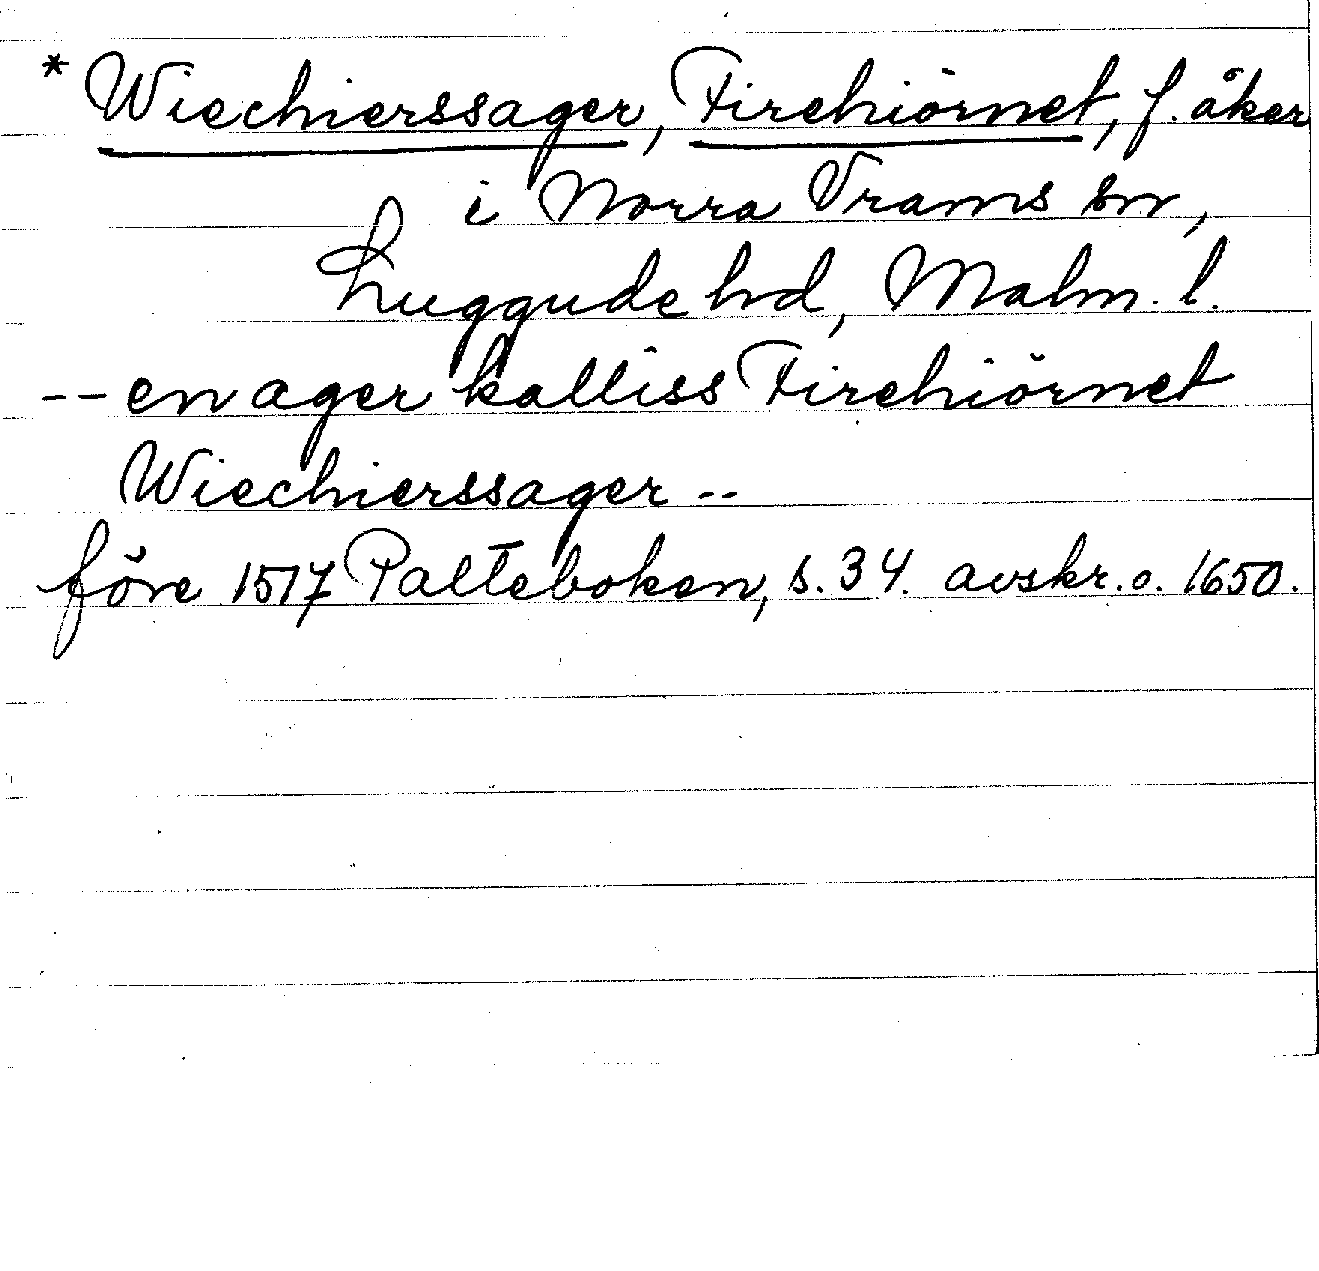 * Wiechierssager, Firehiörnet, f. åker
i Norra Vrams sn,
Luggude hd, Malm. l.
-- en ager kalliss Firehiörnet
Wiechierssager --
före 1517 Palteboken, s. 34. avskr. o. 1650.